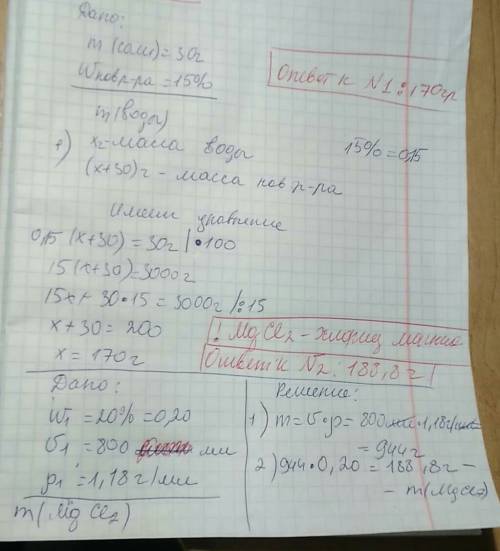 Дано:
m(соли)=30г
Wнов р-ра=15%
Ответ к №1: 170гр
m(воды)
1) xг-масса воды
15%=0,15
(x+30)г - масса нов р-ра
Имеем уравнение
0,15(x+30)=30г|•100
15(x+30)=3000г
15x+30•15=3000г|:15
x+30=200
x=170г
! MgCl2-хлорид магния
Ответ к №2: 188,8г!
Дано:
w1=20%=0,20
υ1=800 мл
ρ1=1,18г/мл
m(MgCl2)
Решение:
1) m=υ•ρ=800мл•1,18г/мл=
=944г
2) 944•0,20=188,8г-
- m(MgCl2)